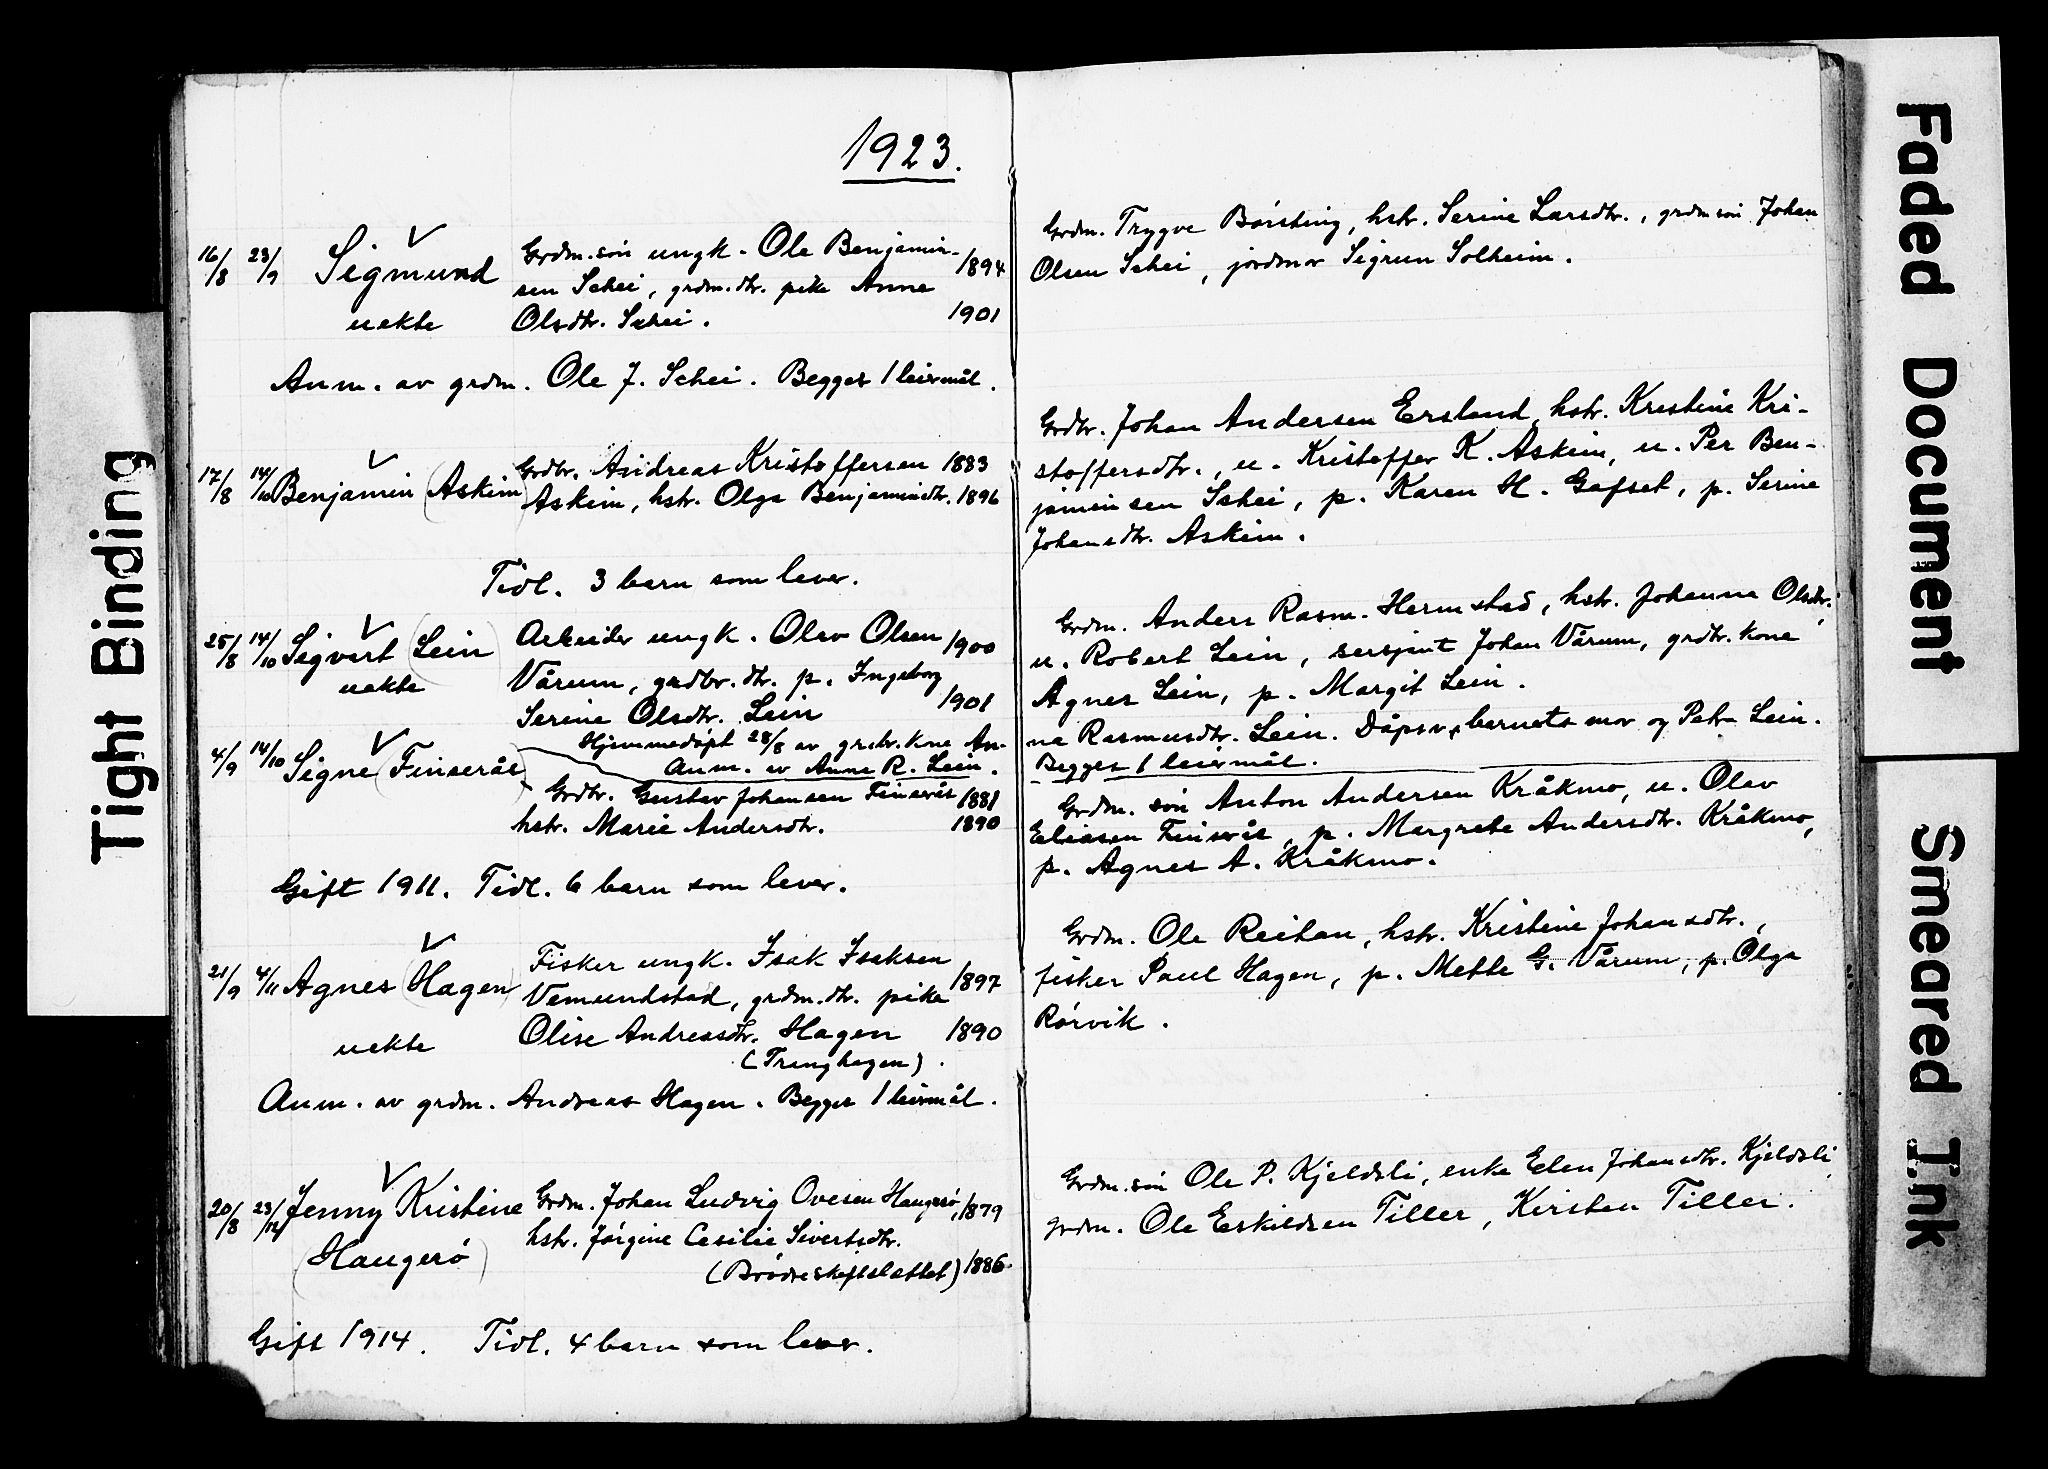 1923.
16/8 23/9 Sigmund
uekte
Grdm. sön ungk. Ole Benjamin- 1894
sen Schei, grdm. dtr. pike Anne
Olsdtr. Schei. 1901
Anm. av grdm. Ole J. Schei. Begges 1 leiermål.
17/8 14/10 Benjamin (Askim)
Grdbr. Andreas Kristoffersen 1883
Askim, hstr. Olga Benjamindtr. 1896
Tidl. 3 barn som lever.
25/8 14/10 Sigvart (Lein)
uekte
Arbeider ungk. Olav Olsen 1900
Vårum, grdbr. dtr. p. Ingeborg
Serine Olsdtr. Lein 1901
Hjemmedöpt 28/8 av grdbr. kone An-
Anm. av Anne R. Lein.
4/9 14/10 Signe (Finserås)
Grdbr. Gustav Johansen Finserås 1881
hstr. Marie Andersdtr. 1890
Gift 1911. Tidl. 6 barn som lever.
21/9 4/11 Agnes (Hagen)
uekte
Fisker ungk. Isak Isaksen
Vemundstad, grdm. dtr. pike 1897
Olise Andreasdtr. Hagen 1890
(Tranghagen).
Anm. av grdm. Andreas Hagen. Begges 1 leiermål.
20/8 23/12 Jenny Kristine
(Haugerö)
Grdm. Johan Ludvig Ovesen Haugerö, 1879
hstr. Jörgine Cesilie Sivertsdtr.
(Brödreskiftslættet) 1886.
Gift 1914. Tidl. 4 barn som lever.
Grdm. Trygve Börsting, hstr. Serine Larsdtr., grdm sön Johan
Olsen Schei, jordmor Sigrun Solheim.
Grdbr. Johan Andersen Ersland, hstr. Kristine Kri-
stoffersdtr., u. Kristoffer K. Askim, u. Per Ben-
jaminsen Schei, p. Karen H. Gafset, p. Serine
Johansdtr. Askim.
Grdm. Anders Rasm. Hermstad, hstr. Johanna Olsdtr.,
u. Robert Lein, sersjant Johan Vårum, grdbr. kone
Agnes Lein, p. Margit Lein.
na Rasmusdtr. Lein. Dåpsv. barnets mor og Petra Lein.
Begges 1 leiermål.
Grdm. sön Anton Andersen Kråkmo, u. Olav
Eliasen Finserås, p. Margrete Andersdtr. Kråkmo,
p. Agnes A. Kråkmo.
Grdm. Ole Reitan, hstr. Kristine Johansdtr.,
fisker Paul Hagen, p. Mette G. Vårum, p. Olga
Rörvik.
Grdm. sön Ole P. Kjeldsli, enke Elen Johansdtr. Kjeldsli,
grdm. Ole Eskildsen Tiller, Kirsten Tiller.
Tight Binding
Faded Document
Smeared Ink